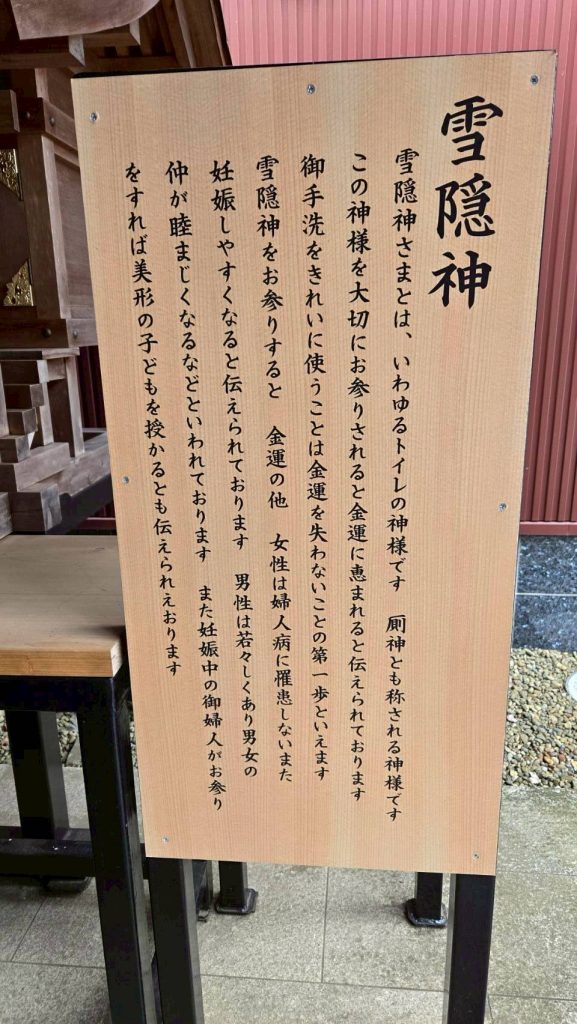 雪隠神
雪隠神さまとは、いわゆるトイレの神様です　厠神とも称される神様です
この神様を大切にお参りされると金運に恵まれると伝えられております
御手洗をきれいに使うことは金運を失わないことの第一歩といえます
雪隠神をお参りすると　金運の他　女性は婦人病に罹患しないまた
妊娠しやすくなると伝えられております　男性は若々しくあり男女の
仲が睦まじくなるなどといわれております　また妊娠中の御婦人がお参り
をすれば美形の子どもを授かるとも伝えられえおります